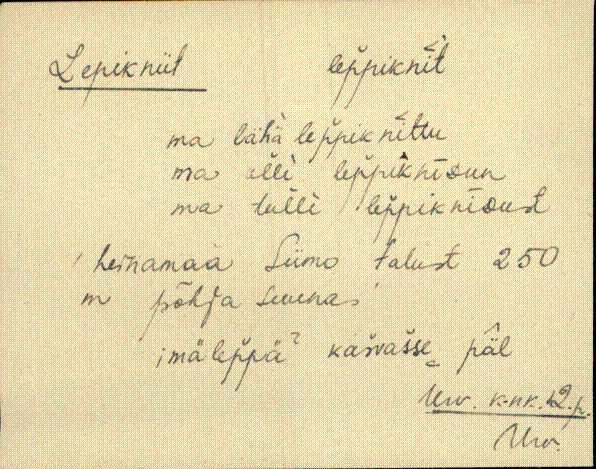 Lepikniit lep̆piknīt
ma lähä lep̆piknīttu
ma olli lep̆piknīdun
ma tulli lep̆piknīdust
heinamaa Siimo talust 250
m põhja suunas
imälep̆pä kasvasse päl
Urv. k-nk. 12-p.
Urv.